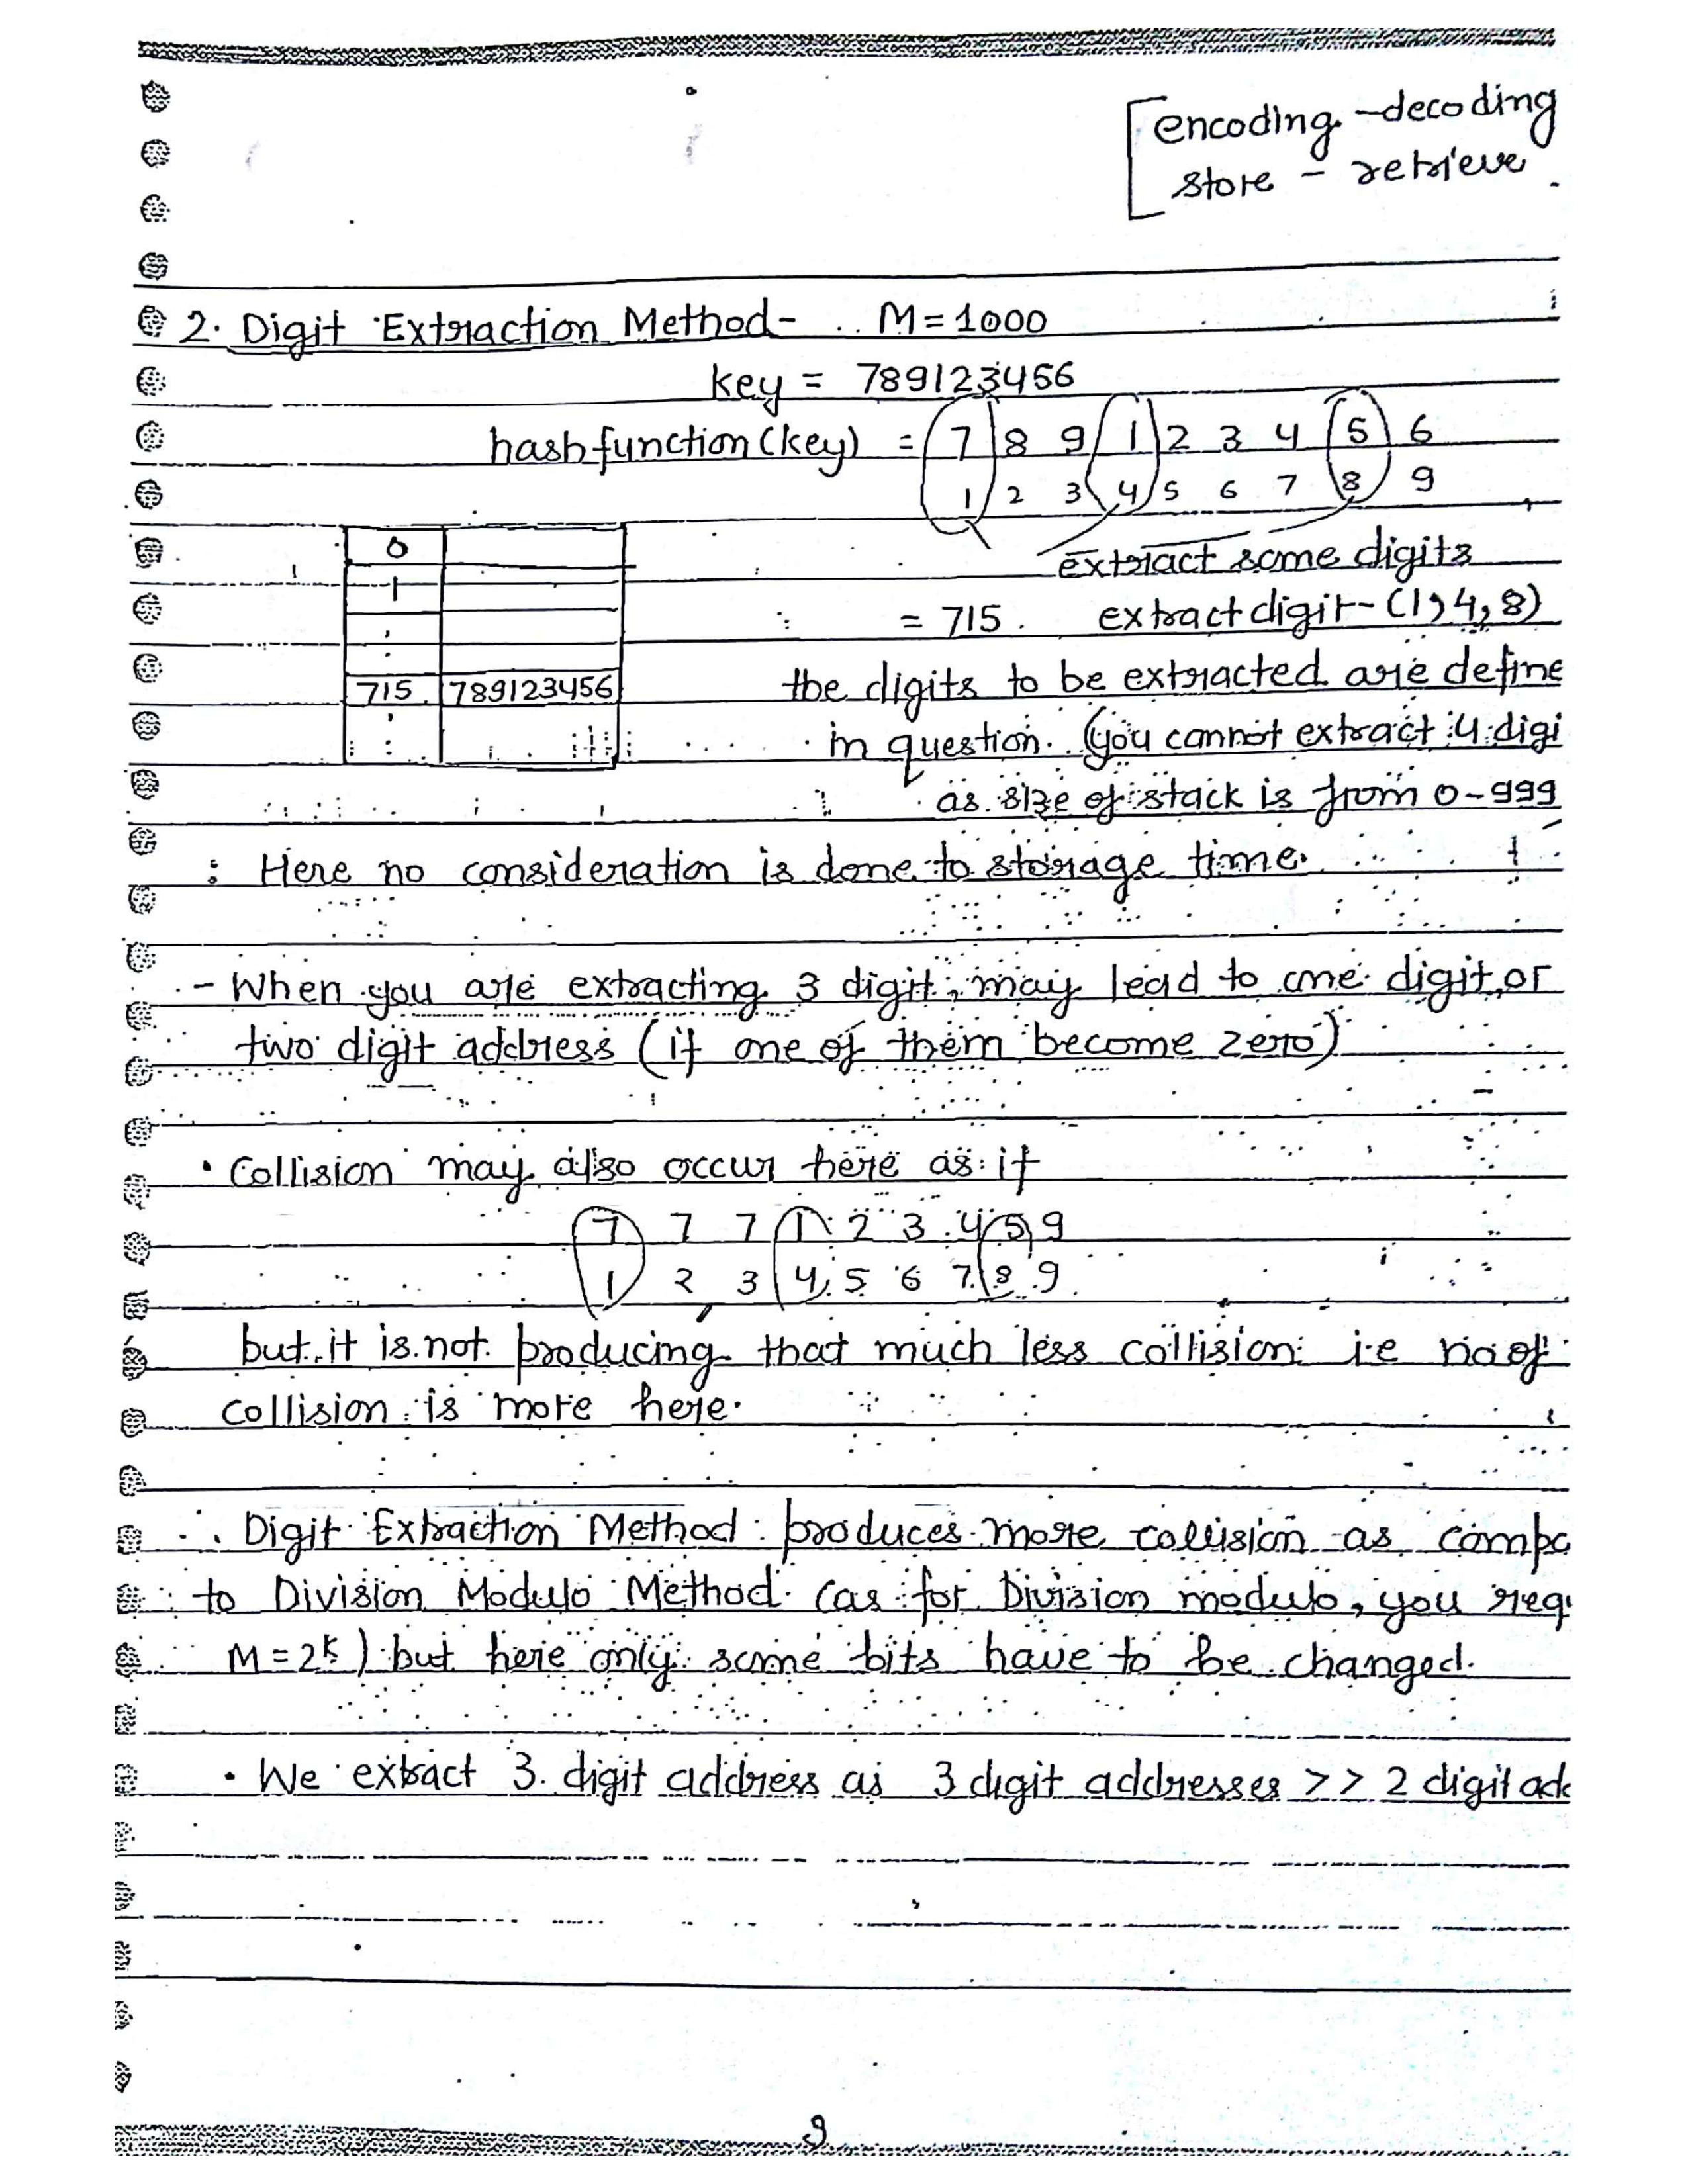 encoding - decoding
store - retrieve.
2. Digit Extraction Method - M = 1000
key = 789123456
hash function (key) = 7 8 9 1 2 3 4 5 6
1 2 3 4 5 6 7 8 9
0
extract some digits
1
= 715. extract digit - (1, 4, 8)
715 789123456 the digits to be extracted are define
in question. (you cannot extract 4 digi
as size of stack is from 0-999
: Here no consideration is done to storage time.
- When you are extracting 3 digit, may lead to one digit or
two digit address (if one of them become zero)
• Collision may also occur here as if
7 7 7 1 2 3 4 5 9
1 2 3 4 5 6 7 8 9
but it is not producing that much less collision i.e no of
collision is more here.
∴ Digit Extraction Method produces more collision as compa
to Division Modulo Method (as for Division modulo, you req
M = 2^k) but here only some bits have to be changed.
• We extract 3 digit address as 3 digit addresses >> 2 digit add
9